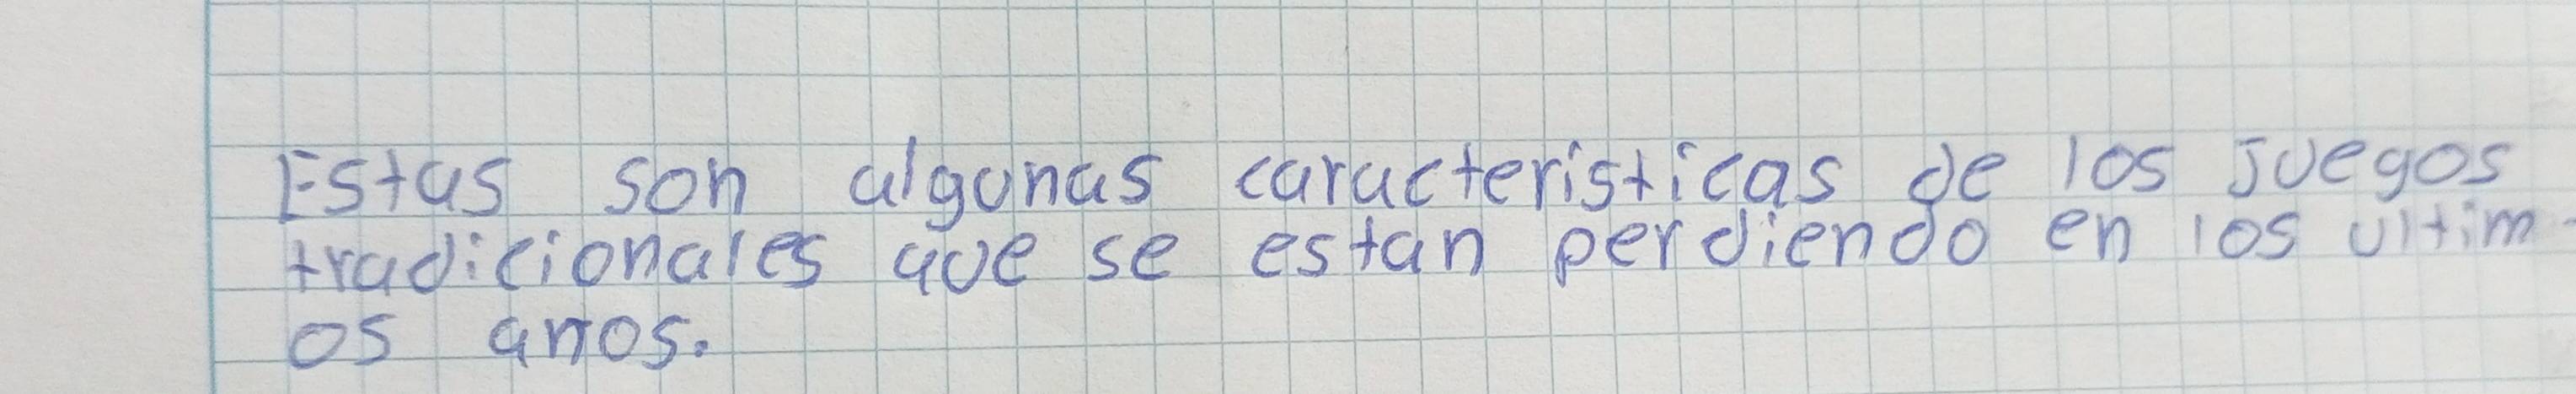 Estas son algunas caracteristicas de los juegos
tradicionales que se estan perdiendo en los ultim-
os años.